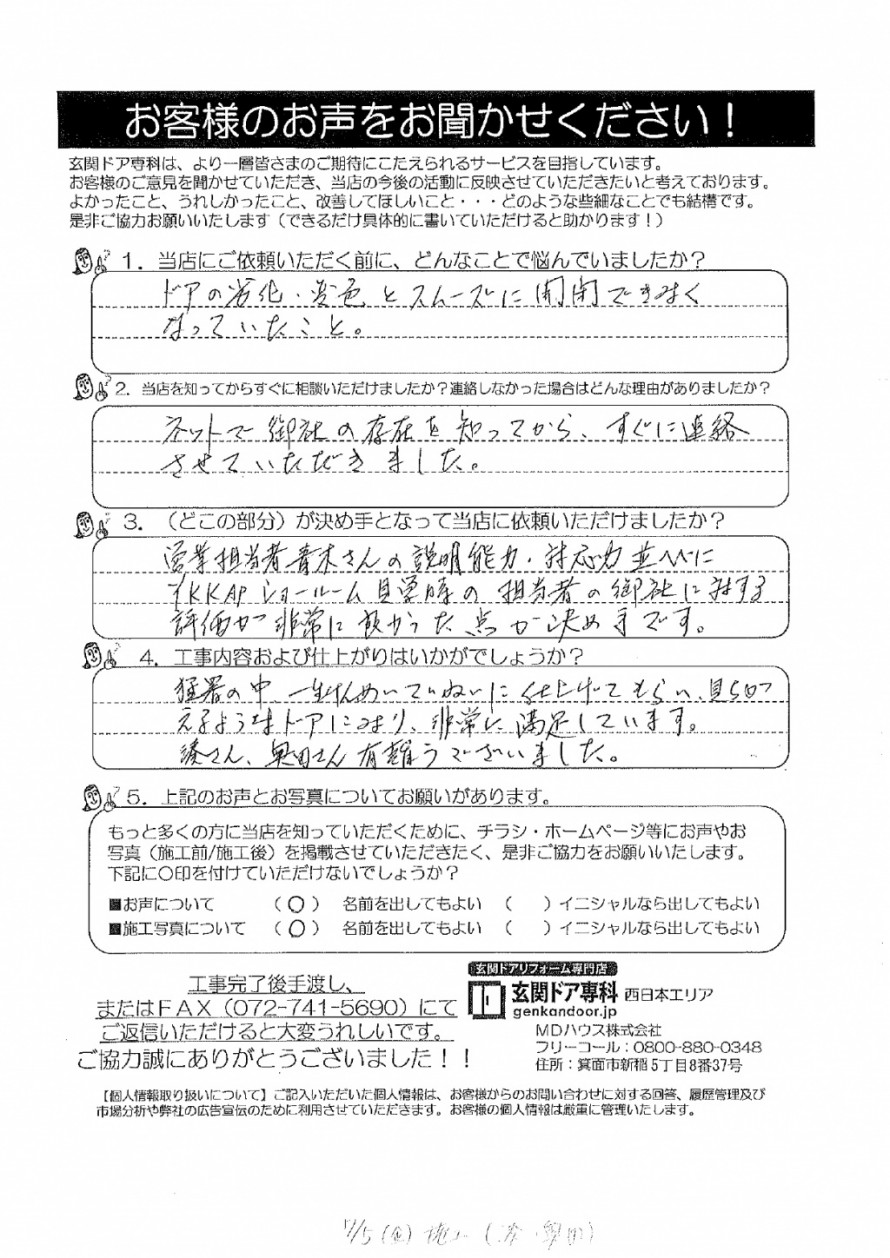 お客様のお声をお聞かせください！
玄関ドア専科は、より一層皆さまのご期待にこたえられるサービスを目指しています。
お客様のご意見を聞かせていただき、当店の今後の活動に反映させていただきたいと考えております。
よかったこと、うれしかったこと、改善してほしいこと・・・どのような些細なことでも結構です。
是非ご協力お願いいたします（できるだけ具体的に書いていただけると助かります！）
1．当店にご依頼いただく前に、どんなことで悩んでいましたか？
ドアの劣化・変色とスムーズに開閉できなく
なっていたこと。
2．当店を知ってからすぐに相談いただけましたか？連絡しなかった場合はどんな理由がありましたか？
ネットで御社の存在を知ってから、すぐに連絡
させていただきました。
3．（どこの部分）が決め手となって当店に依頼いただけましたか？
営業担当者青木さんの説明能力・対応力並びに
YKKAPショールーム見学時の担当者の御社に対する
評価が非常に良かった点が決め手です。
4．工事内容および仕上がりはいかがでしょうか？
猛暑の中一生けんめいていねいに仕上げてもらい、見ちがえるようなドアになり、非常に満足しています。
湊さん、奥田さん有難うございました。
5．上記のお声とお写真についてお願いがあります。
もっと多くの方に当店を知っていただくために、チラシ・ホームページ等にお声やお
写真（施工前/施工後）を掲載させていただきたく、是非ご協力をお願いいたします。
下記に〇印を付けていただけないでしょうか？
■お声について （〇） 名前を出してもよい （ ）イニシャルなら出してもよい
■施工写真について （〇） 名前を出してもよい （ ）イニシャルなら出してもよい
工事完了後手渡し、
またはＦＡＸ（072-741-5690）にて
ご返信いただけると大変うれしいです。
ご協力誠にありがとうございました！！
玄関ドアリフォーム専門店
玄関ドア専科 西日本エリア
genkandoor.jp
ＭＤハウス株式会社
フリーコール：0800-880-0348
住所：箕面市新稲５丁目８番37号
【個人情報取り扱いについて】ご記入いただいた個人情報は、お客様からのお問い合わせに対する回答、履歴管理及び
市場分析や弊社の広告宣伝のために利用させていただきます。お客様の個人情報は厳重に管理いたします。
7/5（金）施工